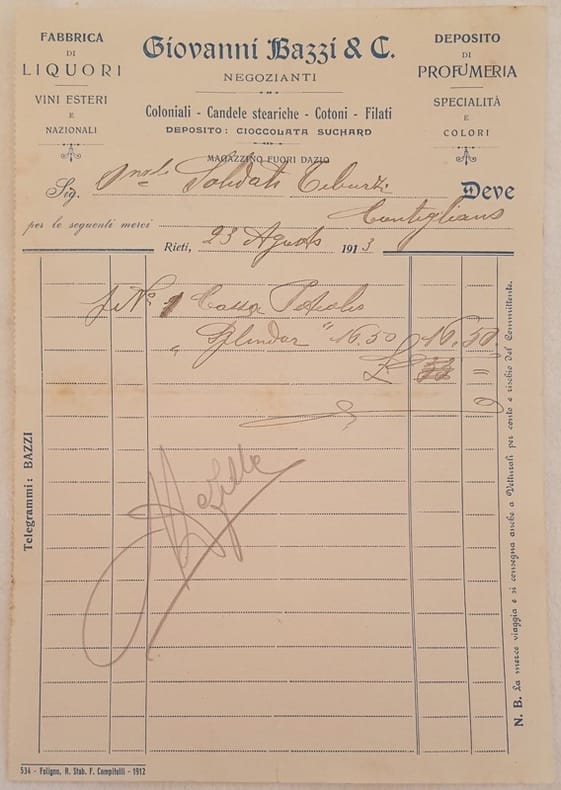 FABBRICA
DI
LIQUORI
VINI ESTERI
E
NAZIONALI
Giovanni Bazzi & C.
NEGOZIANTI
Coloniali - Candele steariche - Cotoni - Filati
DEPOSITO: CIOCCOLATA SUCHARD
MAGAZZINO FUORI DAZIO
DEPOSITO
DI
PROFUMERIA
SPECIALITÀ
E
COLORI
Sig. Soldati Tiburzi Deve
per le seguenti merci Contigliano
Rieti, 23 Agosto 1913
N° 1 Cassa Petrolio
" Splendor " 16.50 16,50
£
Telegrammi: BAZZI
N. B. La merce viaggia e si consegna anche a Vetturali per conto e rischio del Committente.
534 - Foligno, R. Stab. F. Campitelli - 1912